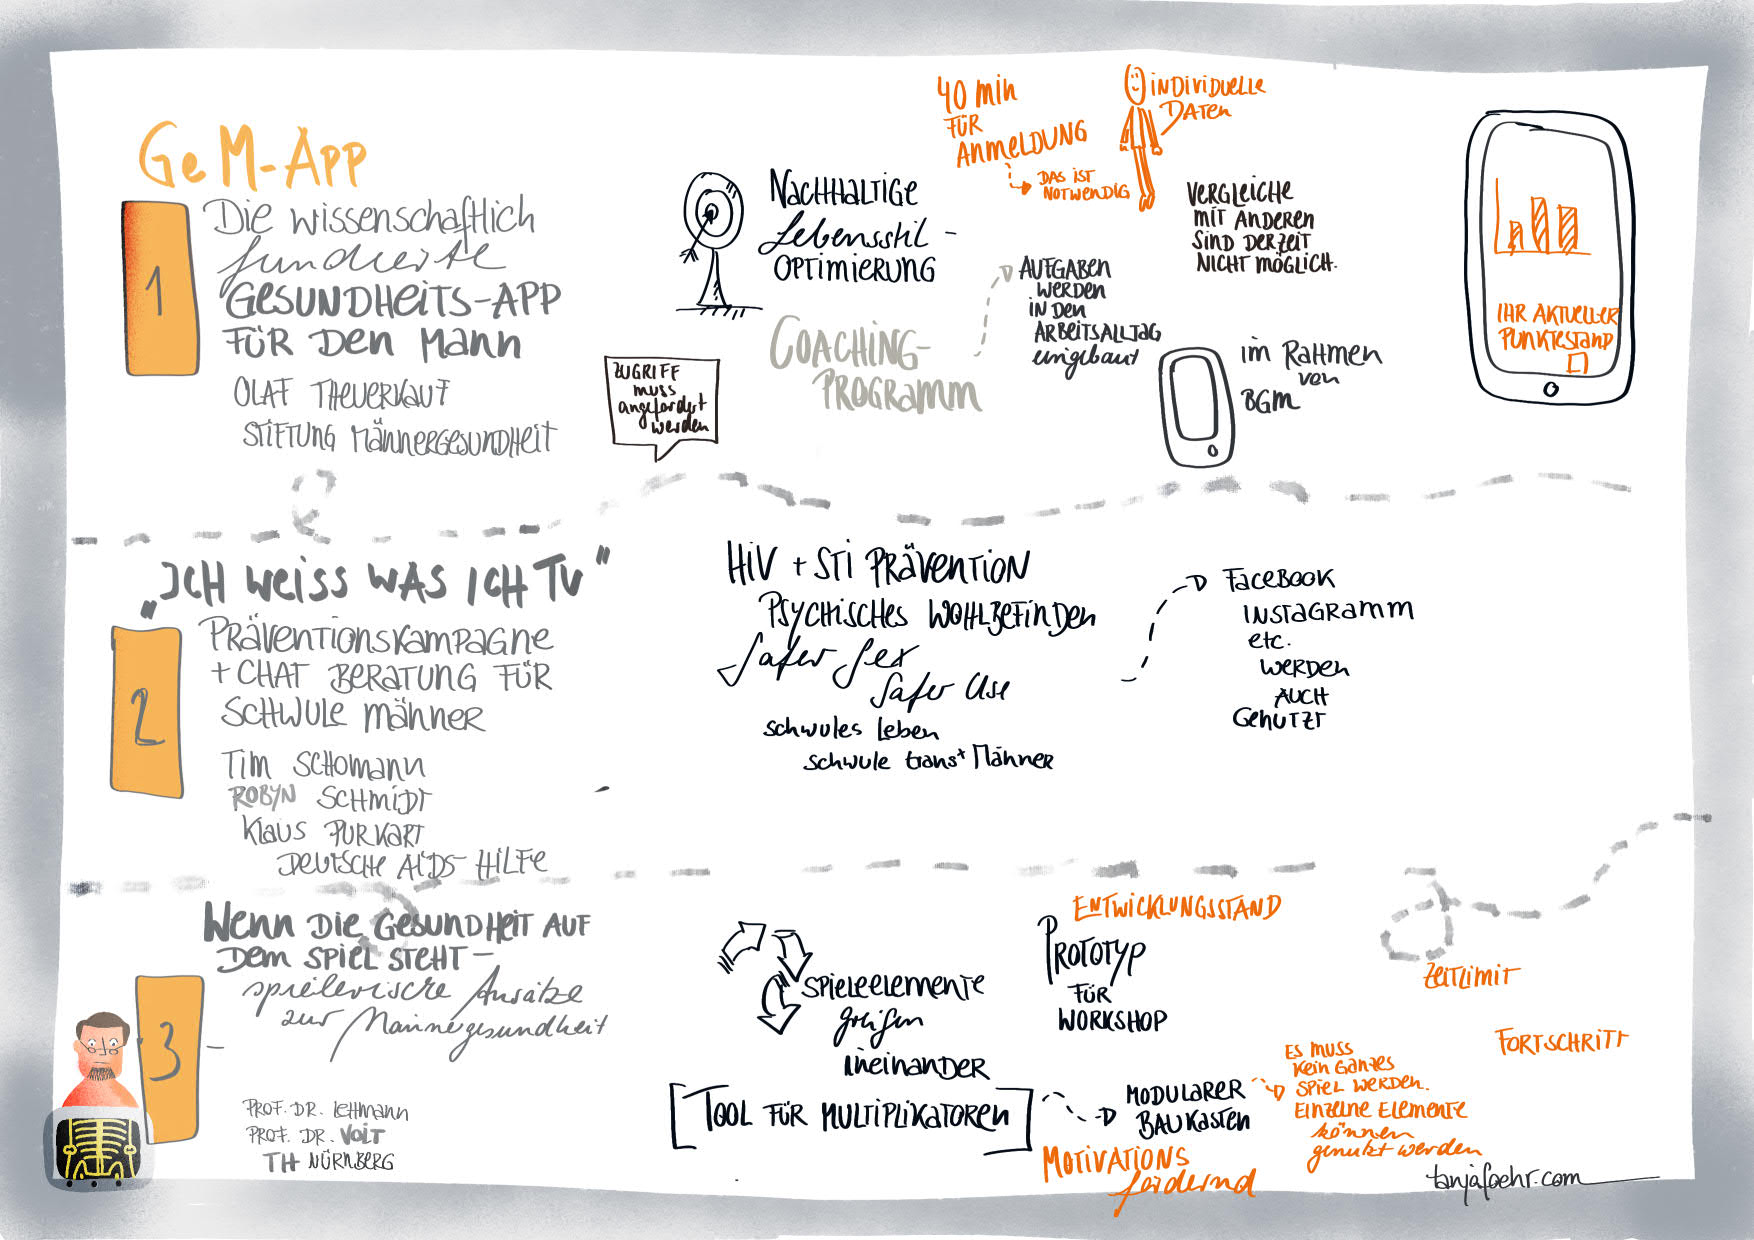 GeM-APP
1
Die wissenschaftlich
fundierte
GESUNDHEITS-APP
FÜR Den Mann
OLAF THEUERKAUF
STIFTUNG MÄNNERGESUNDHEIT
ZUGRIFF
muss
angefordert
werden
NACHHALTIGE
Lebensstil-
OPTIMIERUNG
COACHING-
PROGRAMM
40 min
FÜR
ANMELDUNG
DAS IST
NOTWENDIG
INDIVIDUELLE
DATEN
AUFGABEN
WERDEN
IN DEN
ARBEITSALLTAG
eingebaut
VERGLEICHE
MIT ANDEREN
SIND DERZEIT
NICHT MÖGLICH.
im RAHMEN
von
BGM
IHR AKTUELLER
PUNKTESTAND
„ICH WEISS WAS ICH TU“
2
PRÄVENTIONSKAMPAGNE
+ CHAT BERATUNG FÜR
SCHWULE MÄNNER
TIM SCHOMANN
ROBYN SCHMIDT
KLAUS PURKART
DEUTSCHE AIDS-HILFE
HIV + STI PRÄVENTION
PSYCHISCHES WOHLBEFINDEN
Safer Sex
Safer Use
schwules Leben
schwule trans* Männer
FACEBOOK
INSTAGRAMM
etc.
WERDEN
AUCH
GENUTZT
3
Wenn DIE GESUNDHEIT AUF
DEM SPIEL STEHT-
spielerische Ansätze
zur Männergesundheit
PROF. DR. LEHMANN
PROF. DR. VOIT
TH NÜRNBERG
SPIELEELEMENTE
greifen
ineinander
[TOOL FÜR MULTIPLIKATOREN]
ENTWICKLUNGSSTAND
PROTOTYP
FÜR
WORKSHOP
MODULARER
BAUKASTEN
MOTIVATIONS
fördernd
ES MUSS
KEIN GANZES
SPIEL WERDEN.
EINZELNE ELEMENTE
können
genutzt werden
ZEITLIMIT
FORTSCHRITT
tanjafoehr.com